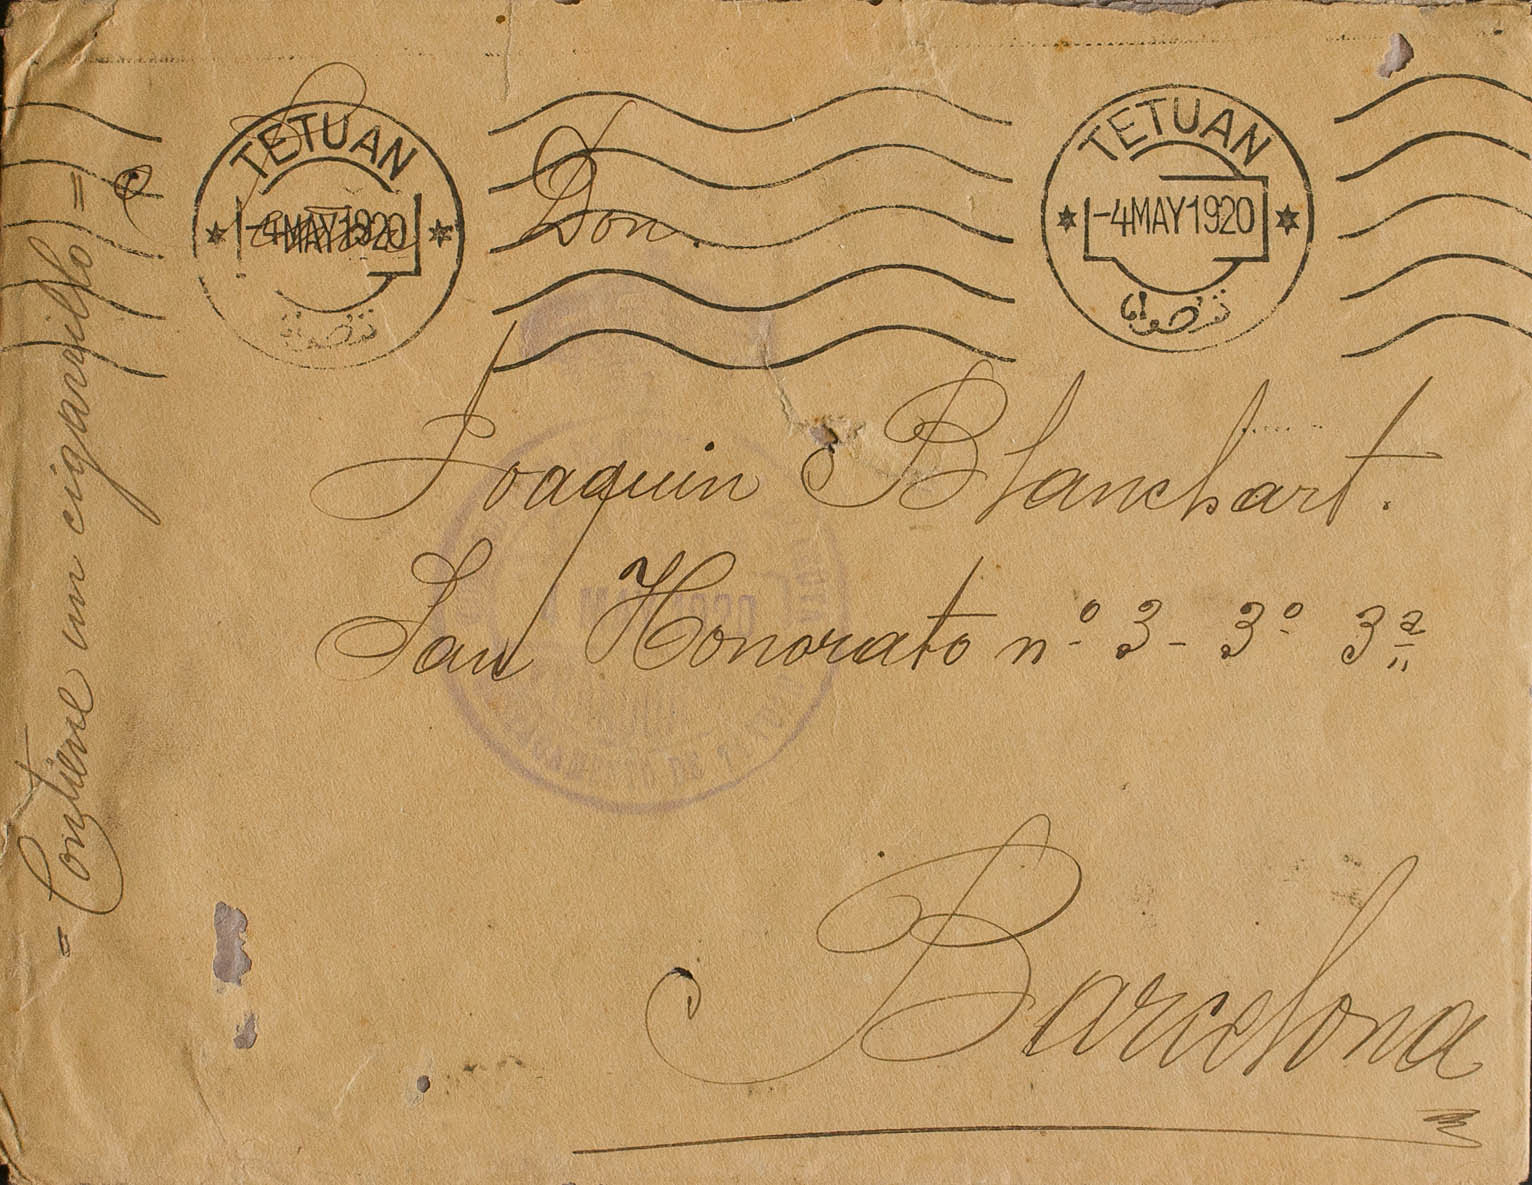 TETUAN
-4MAY1920
تطوان
TETUAN
-4MAY1920
تطوان
Don.
Joaquin Blanchart.
San Honorato nº 3- 3º 3ª
Barcelona
= Contiene un cigarrillo =